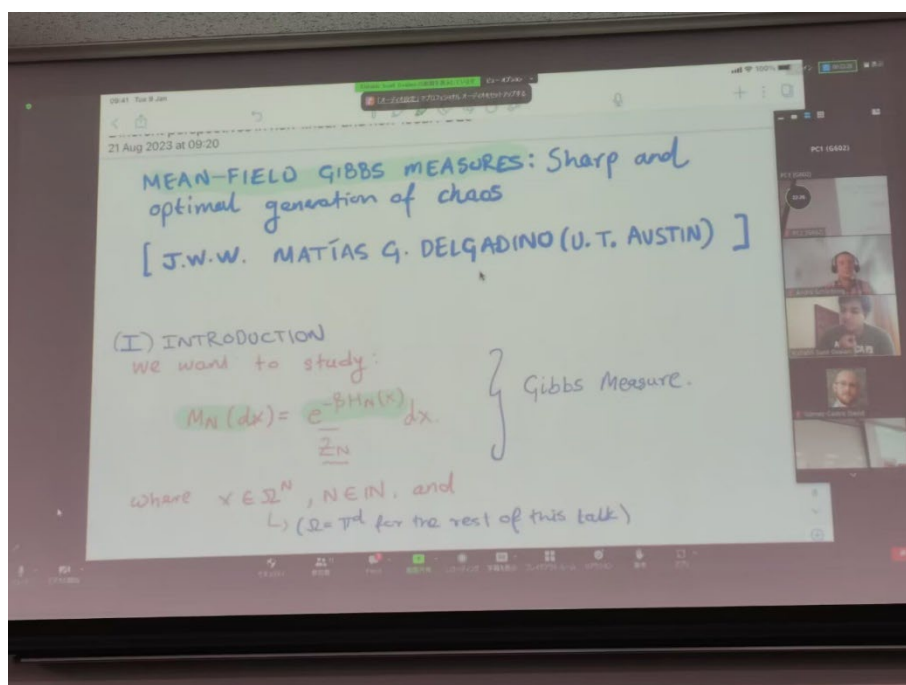 09:41 Tue 9 Jan
100%
21 Aug 2023 at 09:20
PC1 (G602)
MEAN-FIELD GIBBS MEASURES: Sharp and
optimal generation of chaos
[ J.W.W. MATÍAS G. DELGADINO (U.T. AUSTIN) ]
(I) INTRODUCTION
We want to study:
M_N(dx) = e^{-βH_N(x)} / Z_N dx.
} Gibbs Measure.
where x ∈ Ω^N, N ∈ ℕ, and
↳ (Ω = 𝕋^d for the rest of this talk)